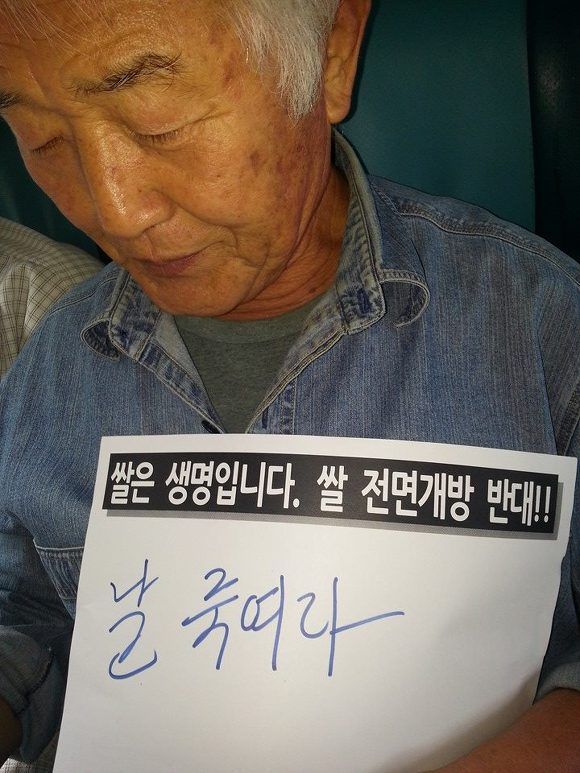 쌀은 생명입니다. 쌀 전면개방 반대!!
날 죽여라